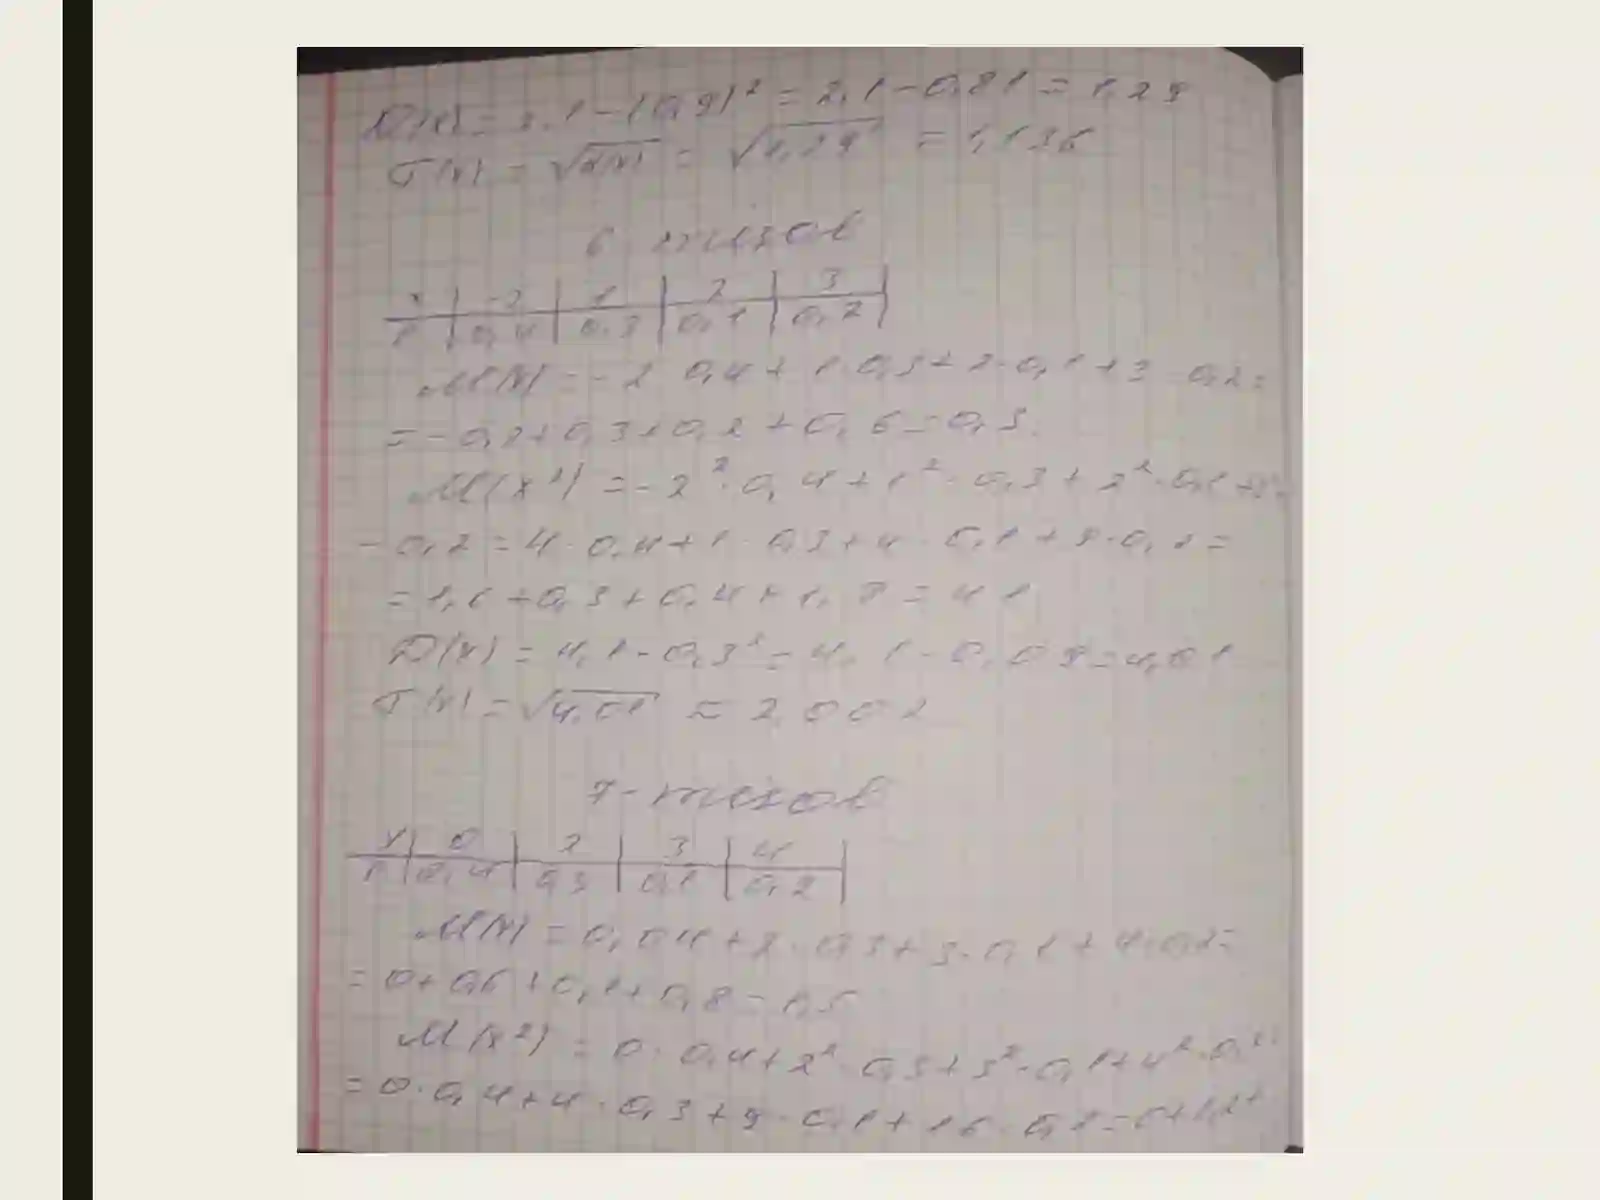 D(x) = 2,1 - (0,9)² = 2,1 - 0,81 = 1,29
σ(x) = √D(x) = √1,29 = 1,136
6 - мисол
x | -2 | 1 | 2 | 3
p | 0,4 | 0,3 | 0,1 | 0,2
M(x) = -2 · 0,4 + 1 · 0,3 + 2 · 0,1 + 3 · 0,2 =
= -0,8 + 0,3 + 0,2 + 0,6 = 0,3.
M(x²) = -2² · 0,4 + 1² · 0,3 + 2² · 0,1 + 3² ·
· 0,2 = 4 · 0,4 + 1 · 0,3 + 4 · 0,1 + 9 · 0,2 =
= 1,6 + 0,3 + 0,4 + 1,8 = 4,1
D(x) = 4,1 - 0,3² = 4,1 - 0,09 = 4,01
σ(x) = √4,01 = 2,002
x | 0 | 2 | 3 | 4
p | 0,4 | 0,3 | 0,1 | 0,2
M(x) = 0,04 + 2 · 0,3 + 3 · 0,1 + 4 · 0,2 =
= 0 + 0,6 + 0,1 + 0,8 = 1,5
M(x²) = 0 · 0,4 + 2² · 0,3 + 3² · 0,1 + 4² · 0,2
= 0 · 0,4 + 4 · 0,3 + 9 · 0,1 + 16 · 0,2 = 0 + 1,2 +